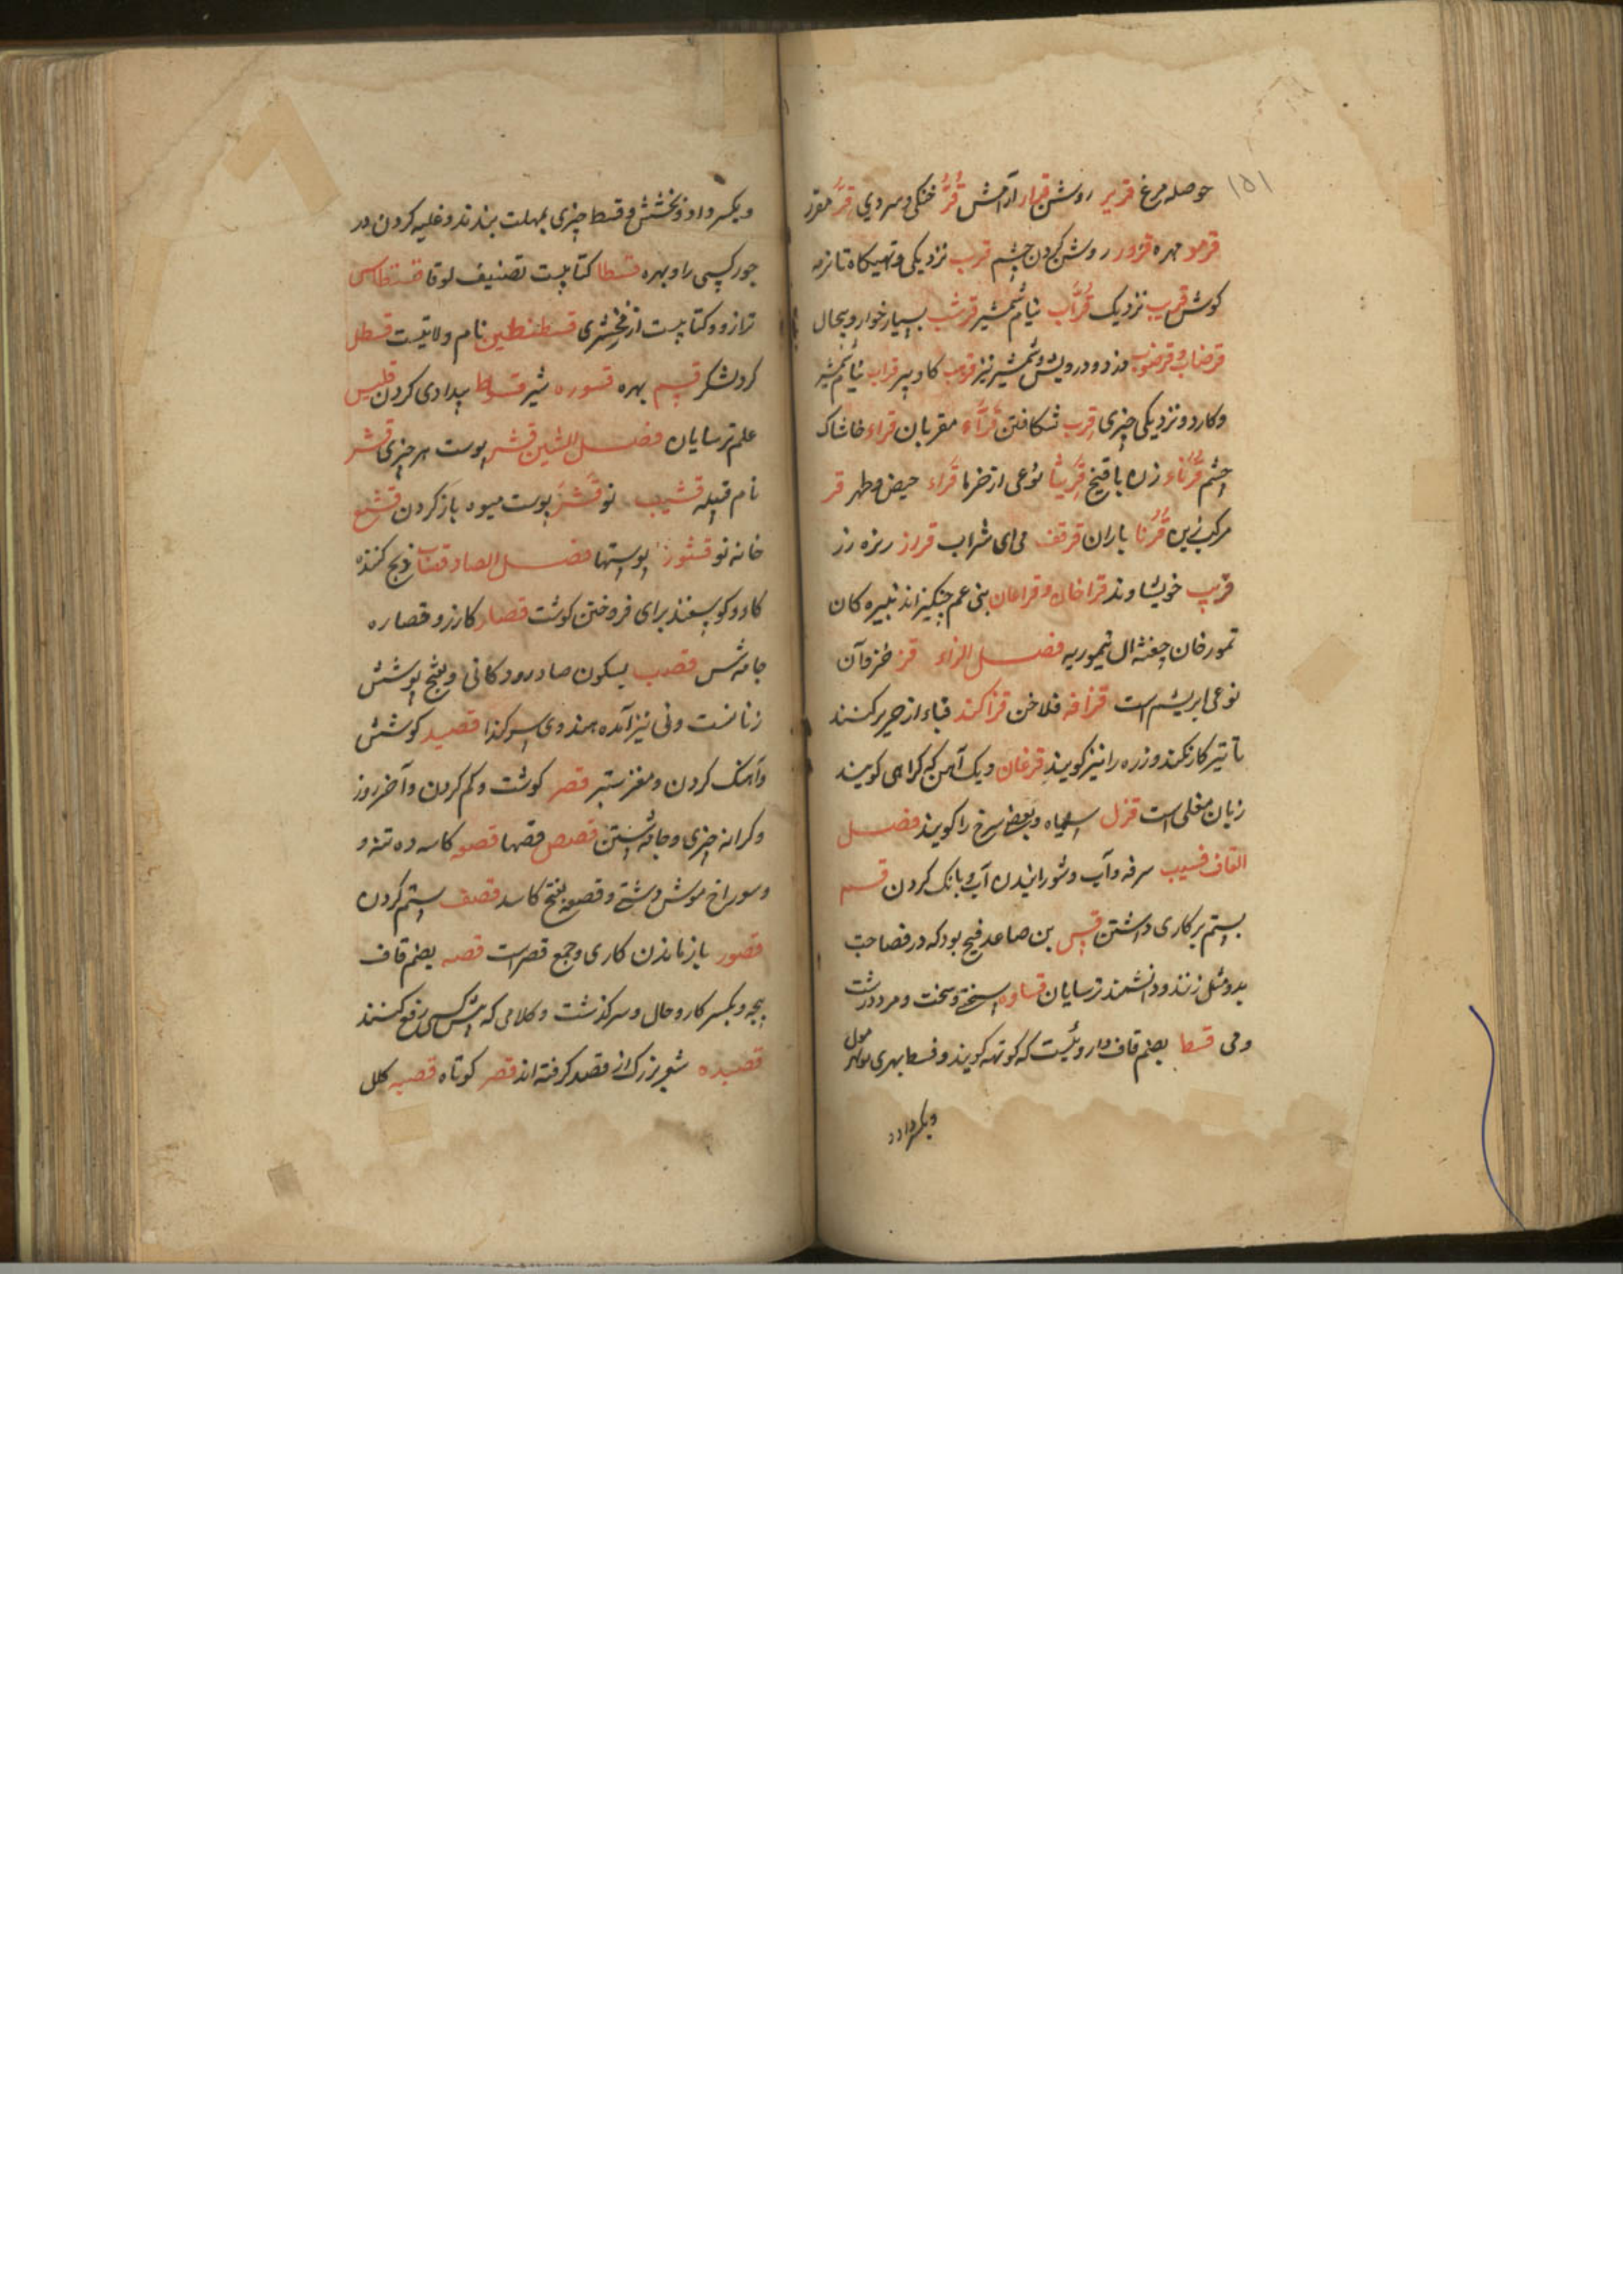 ۱۵۱
حوصله مرغ قریر روشن قرار آرامش قُرُّ خنکی و سردی قرّ مقرر
مهره روشن کردن چشم قرب نزدیکی و تهیکاه تا نرمه
کوش قریب نزدیک قُراب نیام شمشیر قرشب بسیار خوار و بدحال
قرضاب و قرضوب دزد و درویش و شمشیر نیز کاو پیر قراب نیام شمشیر
و کارد و نزدیکی چیزی قرب شکافتن قُرّاء مقریان قراء خاشاک
چشم زن قُرّیثا نوعی از خرما قراء حیض و طهر قر
باران قرقف می ای شراب قراز ریزه رز
قریب خویشاوند قراخان و قراغان بنی عم چنکیز اند نبیره کان
تمورخان تیموریه فصل الزاء قز خز و آن
نوعی ابریشم است قزافه فلاخن قزاکند قباء از حریر کنند
تا تیر کار نکند و زره را نیز کویند قزغان دیک آهن که کراهی کویند
زبان مغلی است قزل سیاه و بعضی سرخ را کویند فصل
القاف سرفه و آب و شورانیدن آب و بانک کردن قسم
بستم بر کاری داشتن قس بن صاعد فصیح بود که در فصاحت
بدو مثل زنند و دانشمند ترسایان قساوه سختی و سخت و مرد درشت
و می قسط بضم قاف داروئیست که کوتهه کویند و قسط بهری
ویکسر داد و
ویکسر داد و بخشش و قسط چیزی بمهلت بندند و غلبه کردن در
جور کسی را و بهره قسطا کتابیست تصنیف لوقا قسطاس
ترازو و کتابیست از زمخشری قسطنطین نام ولایتیست قسطل
کرد لشکر قسم بهره قسوره شیر قسوط بیدادی کردن
علم ترسایان فصل الشین قشر پوست هر چیزی قشر
نام قبیله قشیب نو قشر پوست میوه باز کردن قشع
خانه نو قشور پوستها فصل الصاد قصاب ذبح کننده
کاو و کوسپند برای فروختن کوشت قصار کازر و قصاره
جامه شس قصب بسکون صاد رود کانی و بفتح پوشش
زنانست و نی نیز آمده هندوی سرکندا قصید کوشش
و آهنک کردن و مغز ستبر قصر کوشت و کم کردن و آخر روز
و کرانه چیزی و جامه شستن قصص قصها قصعه کاسه ده تنه و
و سوراخ موش دشتی و قصعه بفتح کاسد قصف ستم کردن
قصور باز ماندن کاری و جمع قصر است قصه بضم قاف
بچه و بکسر کار و حال و سرکذشت و کلامی که پیش کسی رفع کنند
قصیده شعر بزرک از قصد کرفته اند قصر کوتاه قصیه کلل